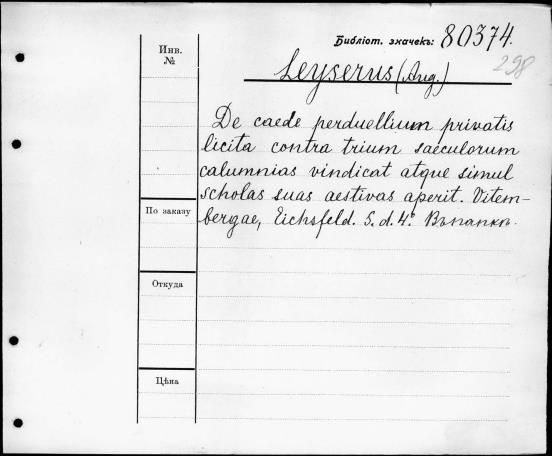 Библіот. значекъ: 80374.
298
Инв.
№
Leyserus (Aug.)
De caede perduellium privatis
licita contra trium saeculorum
calumnias vindicat atque simul
scholas suas aestivas aperit. Vitem-
bergae, Eichsfeld. S. d. 4°. Въ папкѣ.
По заказу
Откуда
Цѣна